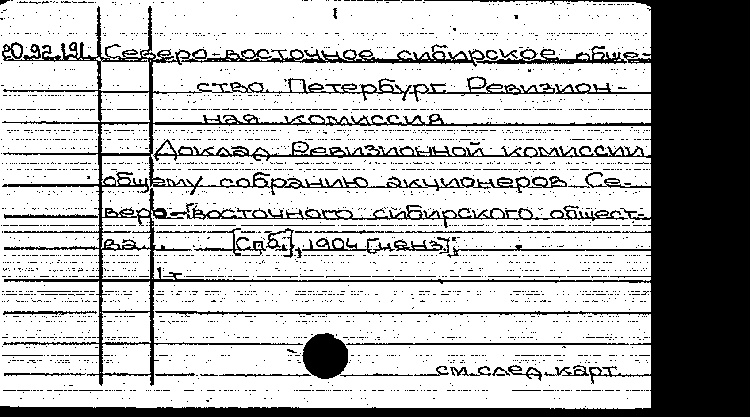 20.92.191. Северо-восточное сибирское обще-
ство. Петербург. Ревизион-
ная комиссия.
Доклад Ревизионной комиссии
общему собранию акционеров Се-
веро-[восточного сибирского общест-
ва. [Спб.], 1904 [ценз];
1 т
см. след. карт.